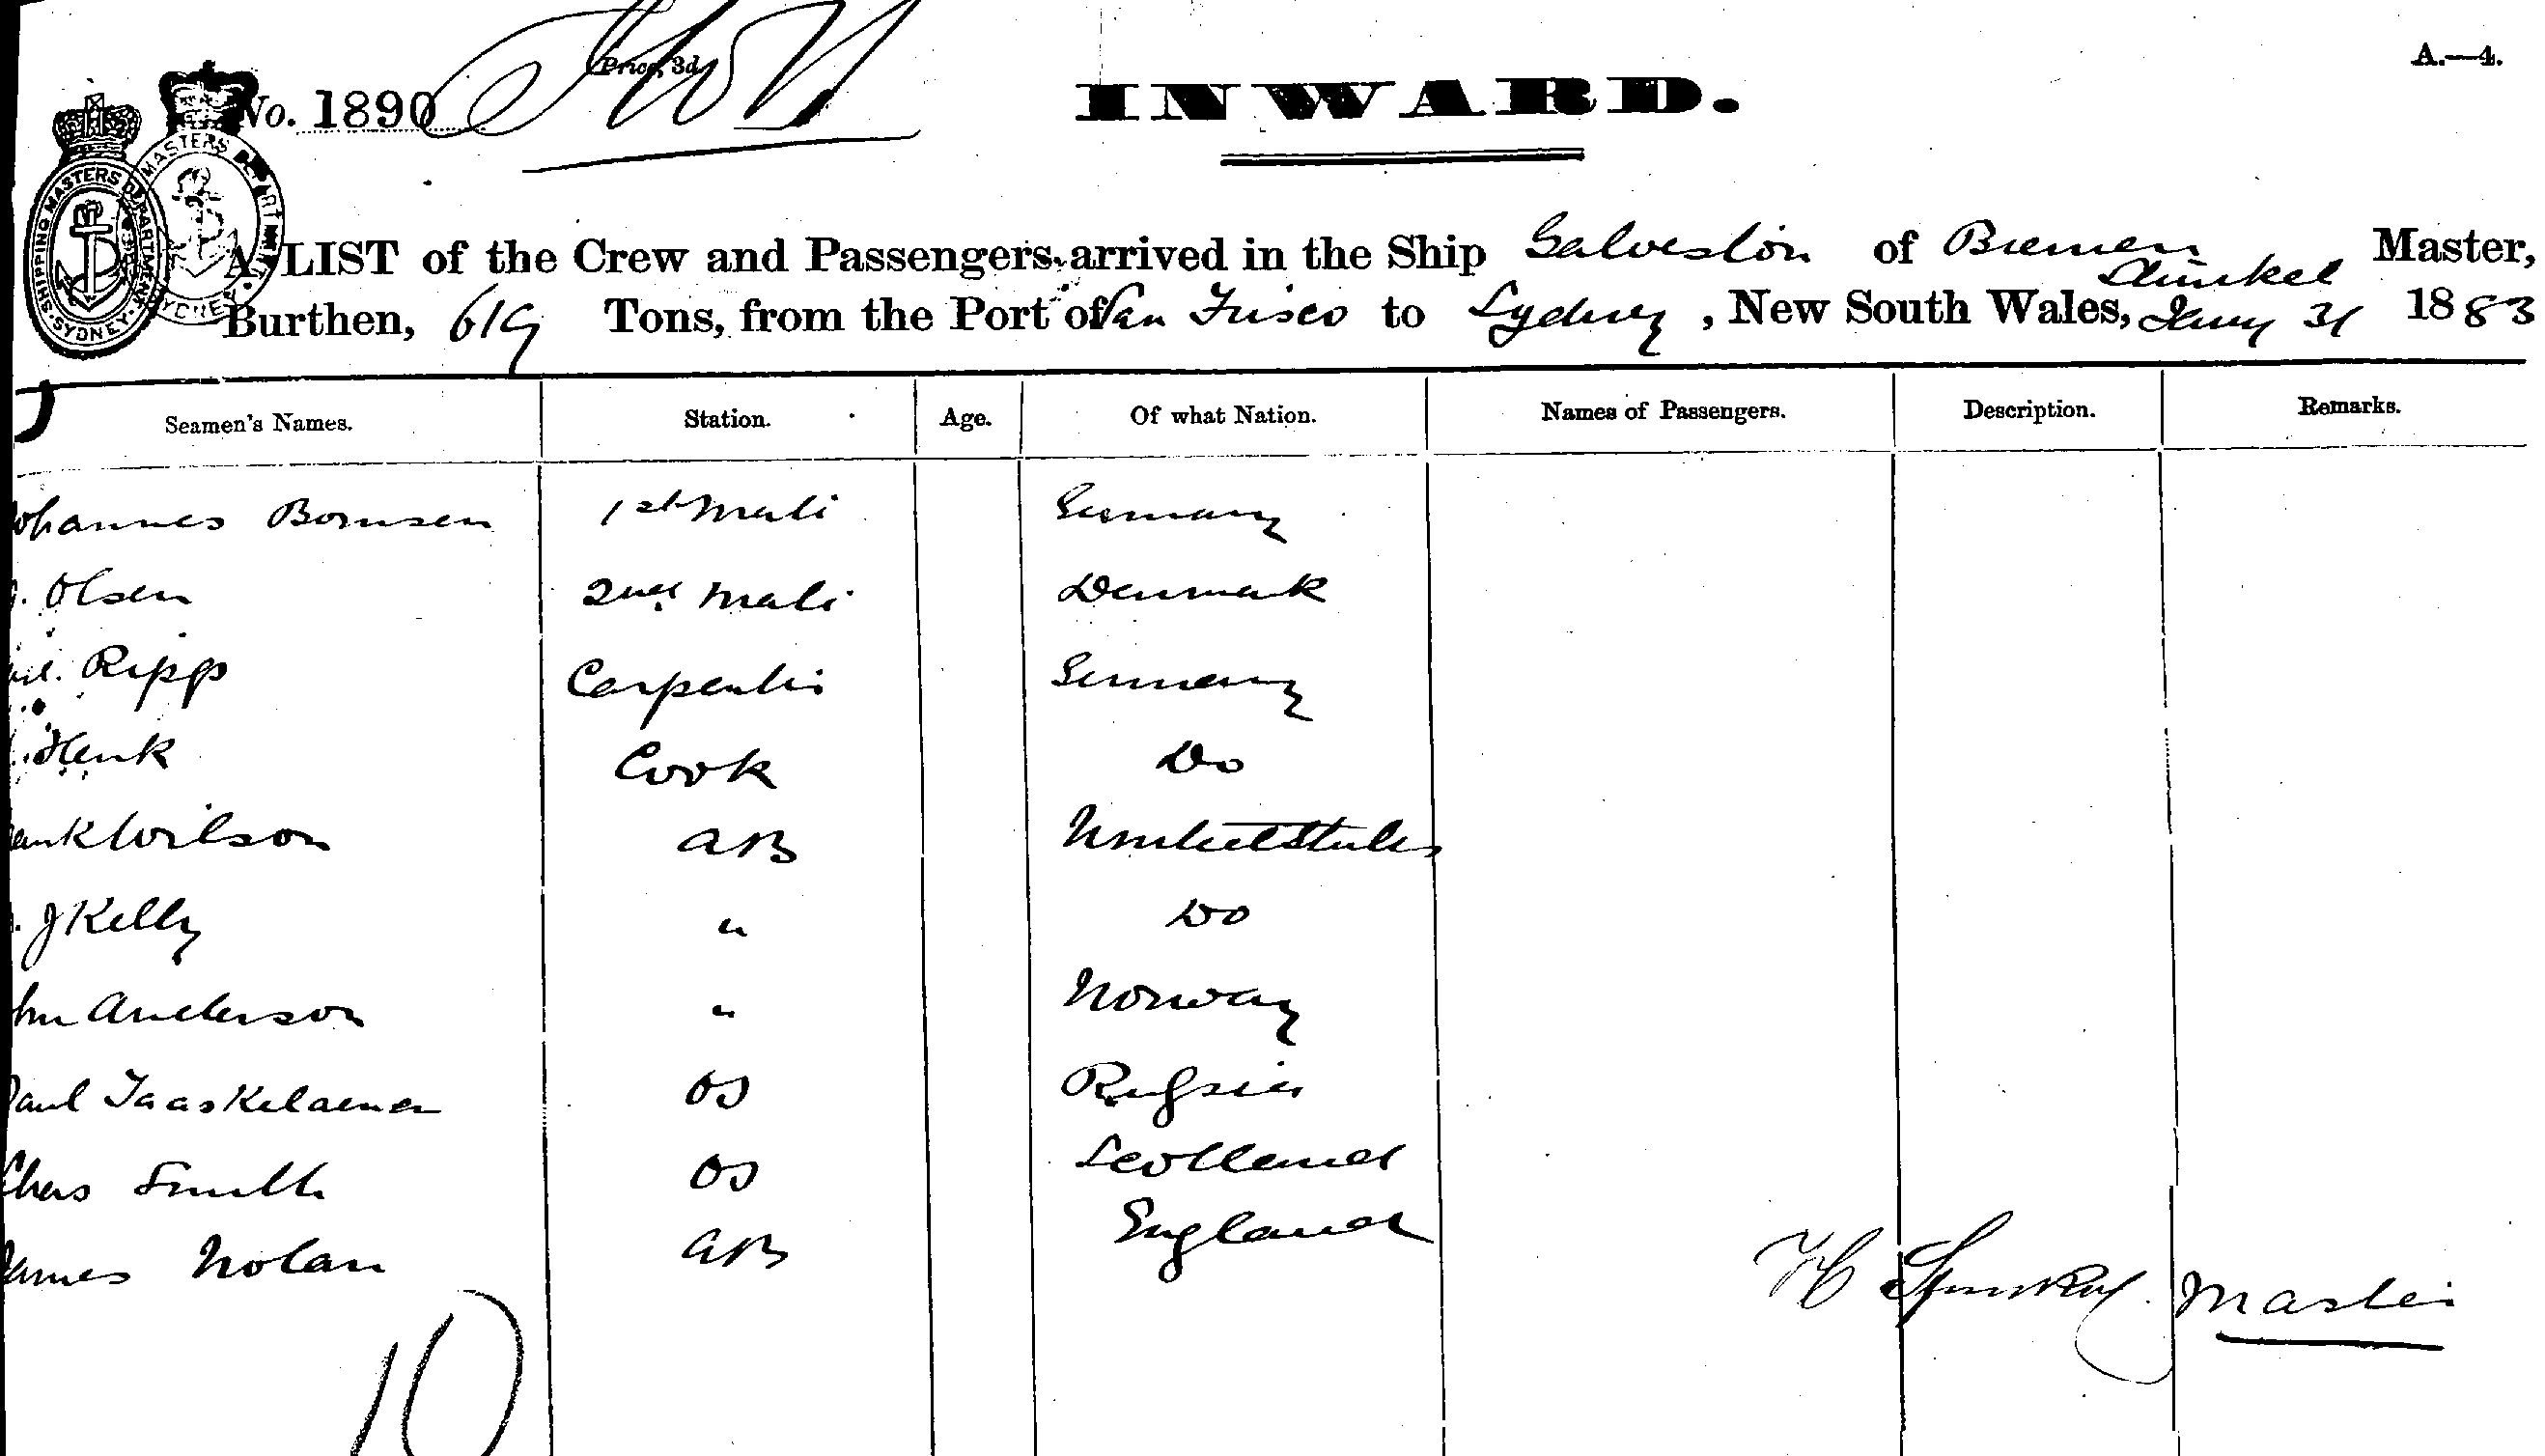 A.—4.
Price, 3d
No. 1890
INWARD.
SHIPPING MASTERS DEPARTMENT SYDNEY
A LIST of the Crew and Passengers arrived in the Ship Galveston of Bremen Master,
Burthen, 619 Tons, from the Port of San Frisco to Sydney, New South Wales, Jany 31 1883
Seamen's Names. Station. Age. Of what Nation. Names of Passengers. Description. Remarks.
ohannes Bornsen 1st Mate Germany
Olsen 2nd Mate Denmark
Ripps Carpenter Germany
Henk Cook Do
ank Wilson AB United States
J Kelly " Do
ohn Anderson " Norway
Paul Taaskelaenen OS Russia
Chas Smith OS Scotland
James Nolan AB England
H Master
10